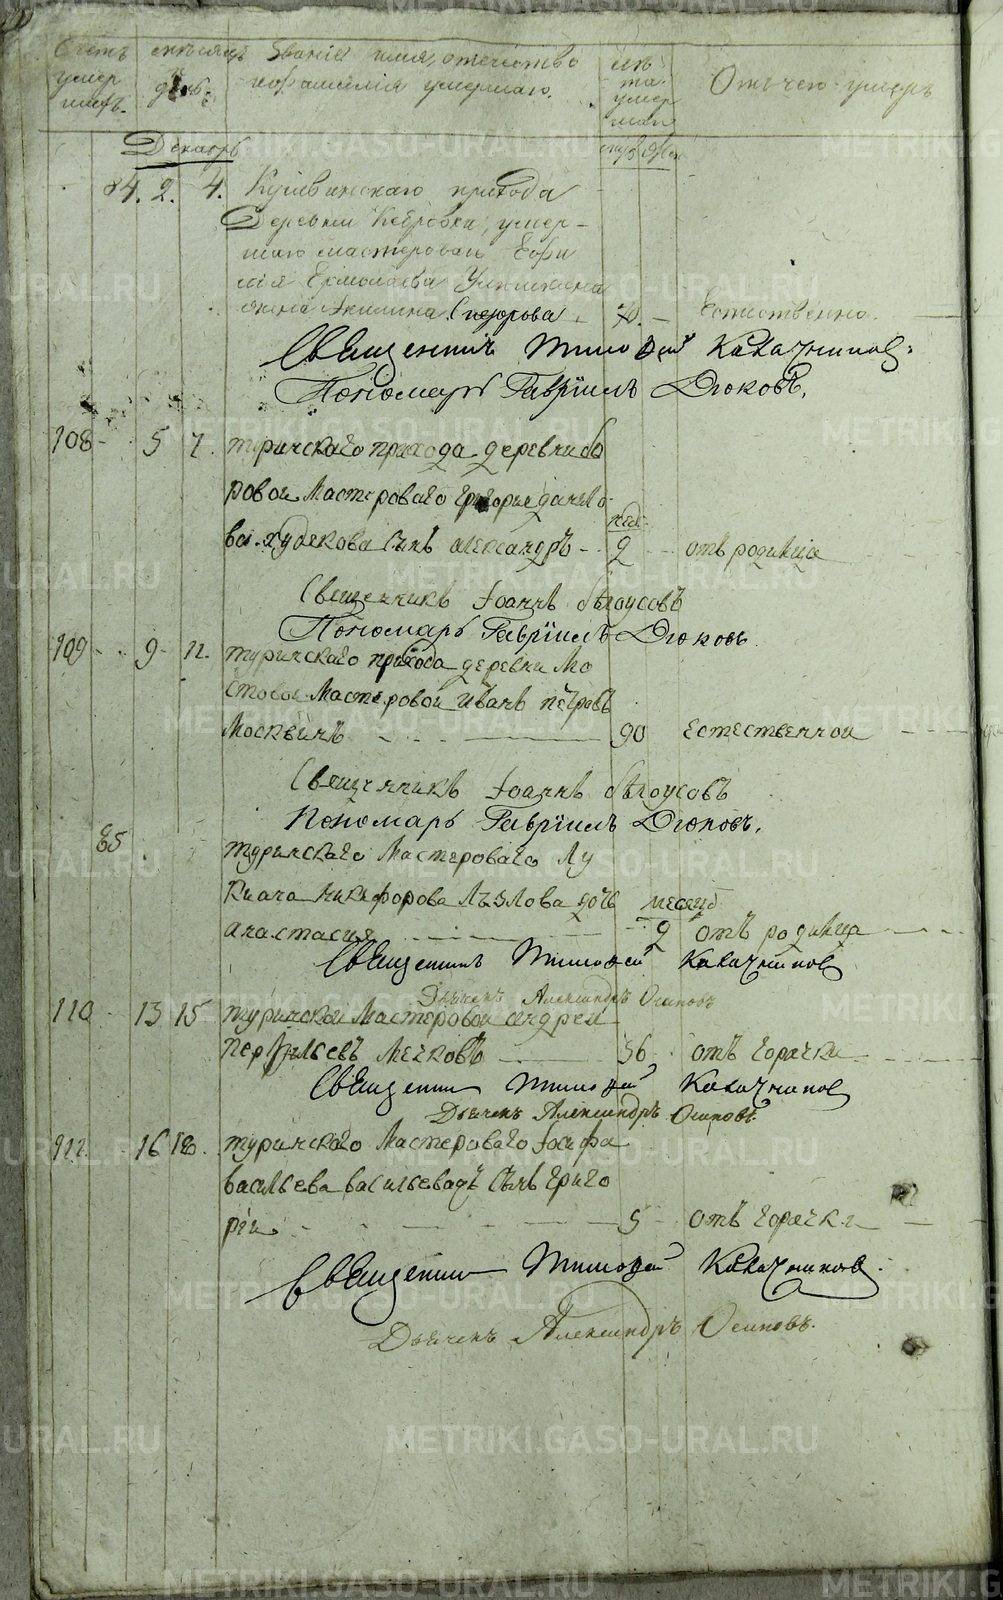 Счетъ мѣсяцъ Званіе имя, отечество лѣ Отъ чего умеръ
умер и фамилія умершаго. та
шихъ. умер
шая
Декабрь
84. 2. 4. Кушвинскаго прихода
Деревни Кедровки, умер-
шаго мастероваго Ефи
мія Ермолаева
жена Акилина 70. Естественно.
Священникъ Тимофей Калачниковъ
Пономарь Гавріилъ Дюковъ.
108 5 7. туринскаго прихода деревни бо
ровой Мастероваго григорья данило
ва худекова Сынъ александръ нед: 2 отъ родимца
Священникъ Іоаннъ бѣлоусовъ
Пономарь Гавріилъ Дюковъ
109 9 11. туринскаго прихода деревни Мо
стовой Мастеровой Иванъ петровъ
Москвинъ 90 Естественной
Священникъ Іоаннъ бѣлоусовъ
Пономарь Гавріилъ Дюковъ.
85 туринскаго Мастероваго Лу
киана Никифорова дочь месяц
анастасия 2 отъ родимца
Священникъ Тимофей Калачниковъ
Дьячекъ Александръ Осиповъ
110 13 15 туринской Мастеровой андрей
Мечковъ 56 отъ горячки
Священникъ Тимофей Калачниковъ
Дьячекъ Александръ Осиповъ.
111 16 18. туринскаго Мастероваго Іосифа
Васильева Сынъ Григо
рій 5 отъ горячки
Священникъ Тимофей Калачниковъ.
Дьячекъ Александръ Осиповъ.
METRIKI.GASO-URAL.RU